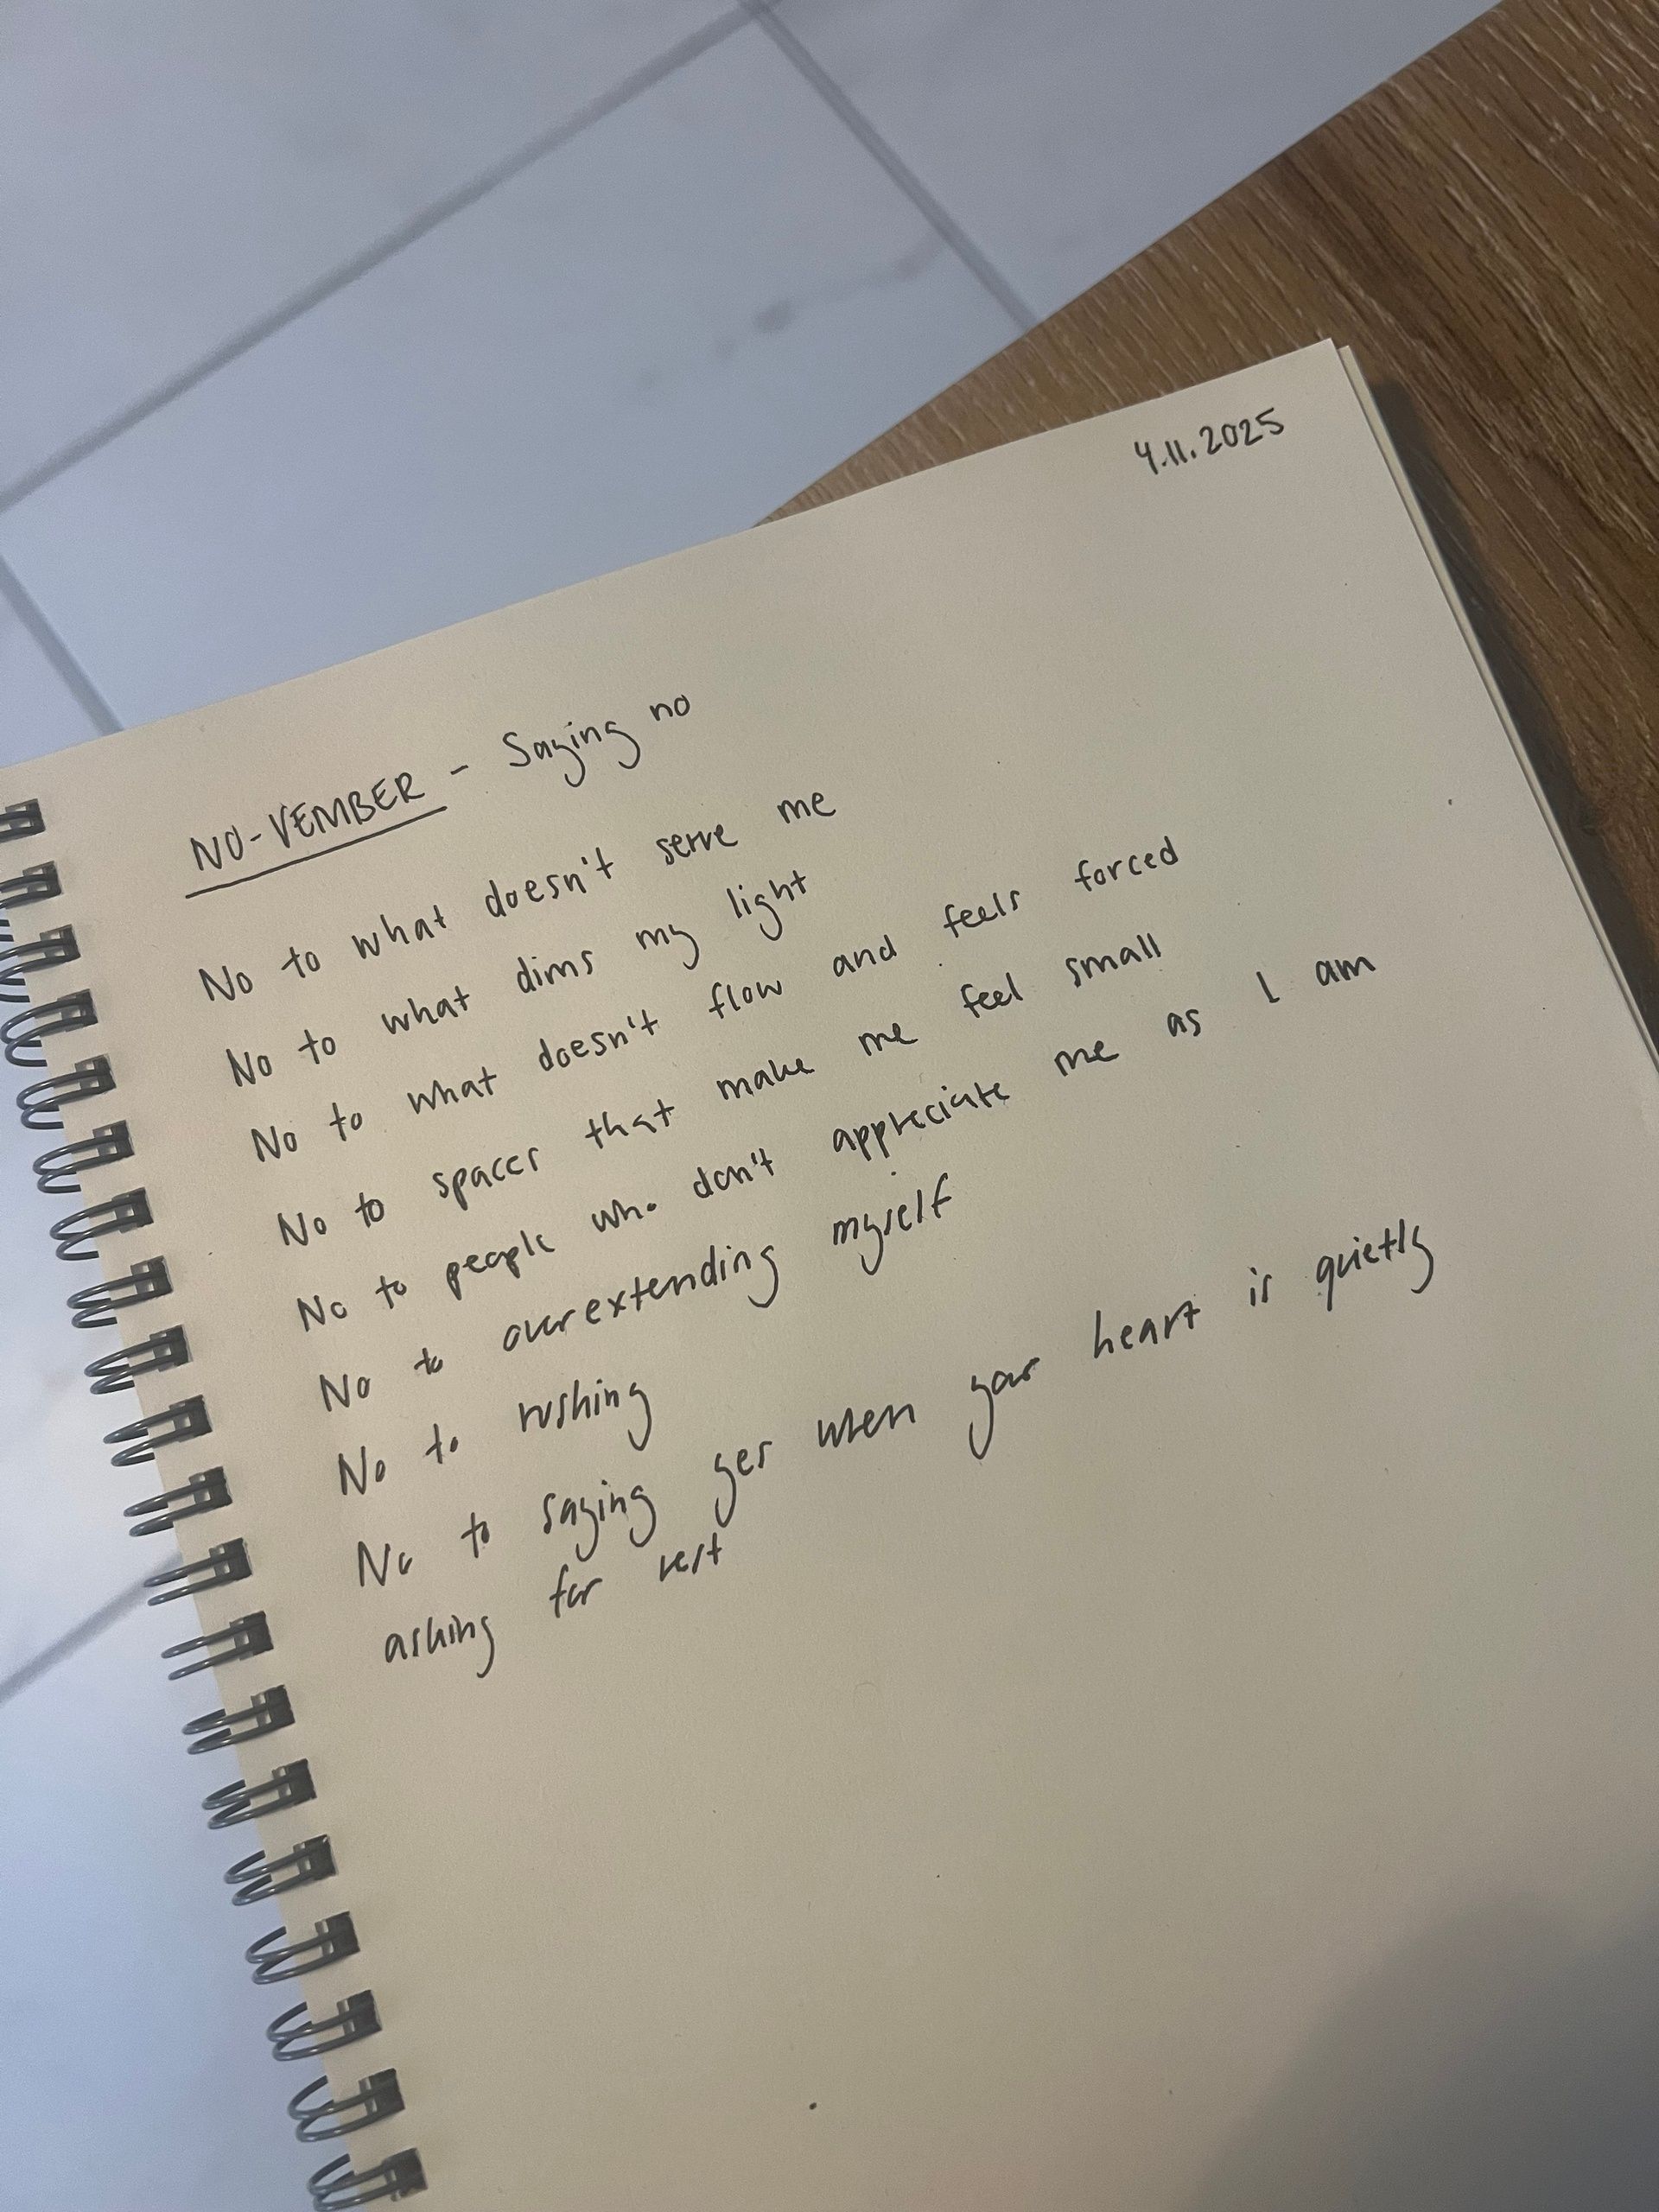 4.11.2025
NO-VEMBER - Saying no
No to what doesn't serve me
No to what dims my light
No to what doesn't flow and feels forced
No to spaces that make me feel small
No to people who don't appreciate me as I am
No to overextending myself
No to rushing
No to saying yes when your heart is quietly
asking for rest